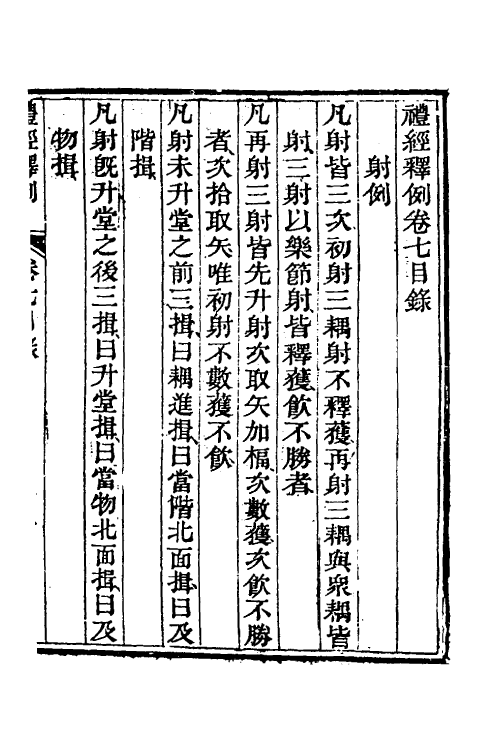 禮經釋例卷七目錄
射例
凡射皆三次初射三耦射不釋獲再射三耦與衆耦皆
射三射以樂節射皆釋獲飲不勝者
凡再射三射皆先升射次取矢加楅次數獲次飲不勝
者次拾取矢唯初射不數獲不飲
凡射未升堂之前三揖曰耦進揖曰當階北面揖曰及
階揖
凡射旣升堂之後三揖曰升堂揖曰當物北面揖曰及
物揖
禮經釋例
卷七目錄